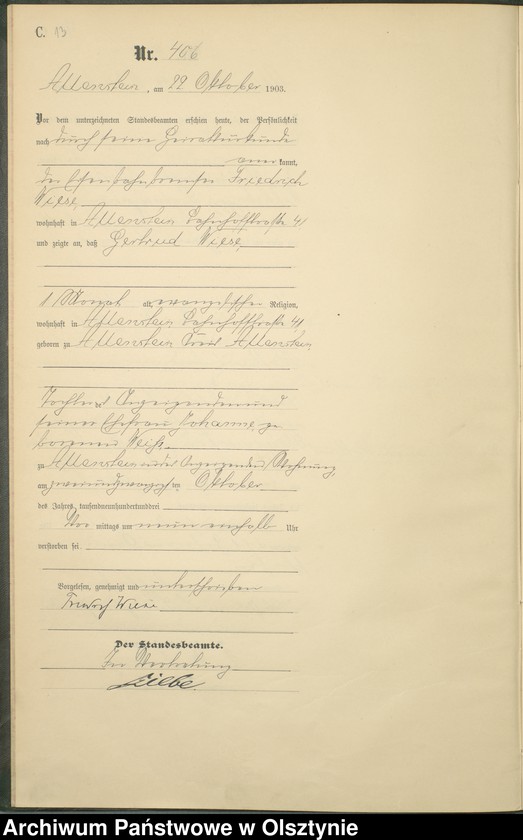 C. 13
Nr. 406
Allenstein, am 22 Oktober 1903.
Vor dem unterzeichneten Standesbeamten erschien heute, der Persönlichkeit
nach durch seine Heiratsurkunde
anerkannt,
der Eisenbahnbremser Friedrich
Wiese
wohnhaft in Allenstein Bahnhofstraße 41
und zeigte an, daß Gertrud Wiese,
1 Monat alt, evangelischer Religion,
wohnhaft in Allenstein Bahnhofstraße 41,
geboren zu Allenstein Kreis Allenstein
Tochter des Anzeigenden und
seiner Ehefrau Johanne, ge
borenen Weiß
zu Allenstein in des Anzeigenden Wohnung,
am zweiundzwanzigsten Oktober
des Jahres tausendneunhundertunddrei
Vormittags um neun einhalb Uhr
verstorben sei.
Vorgelesen, genehmigt und unterschrieben
Friedrich Wiese
Der Standesbeamte.
In Vertretung
Archiwum Państwowe w Olsztynie